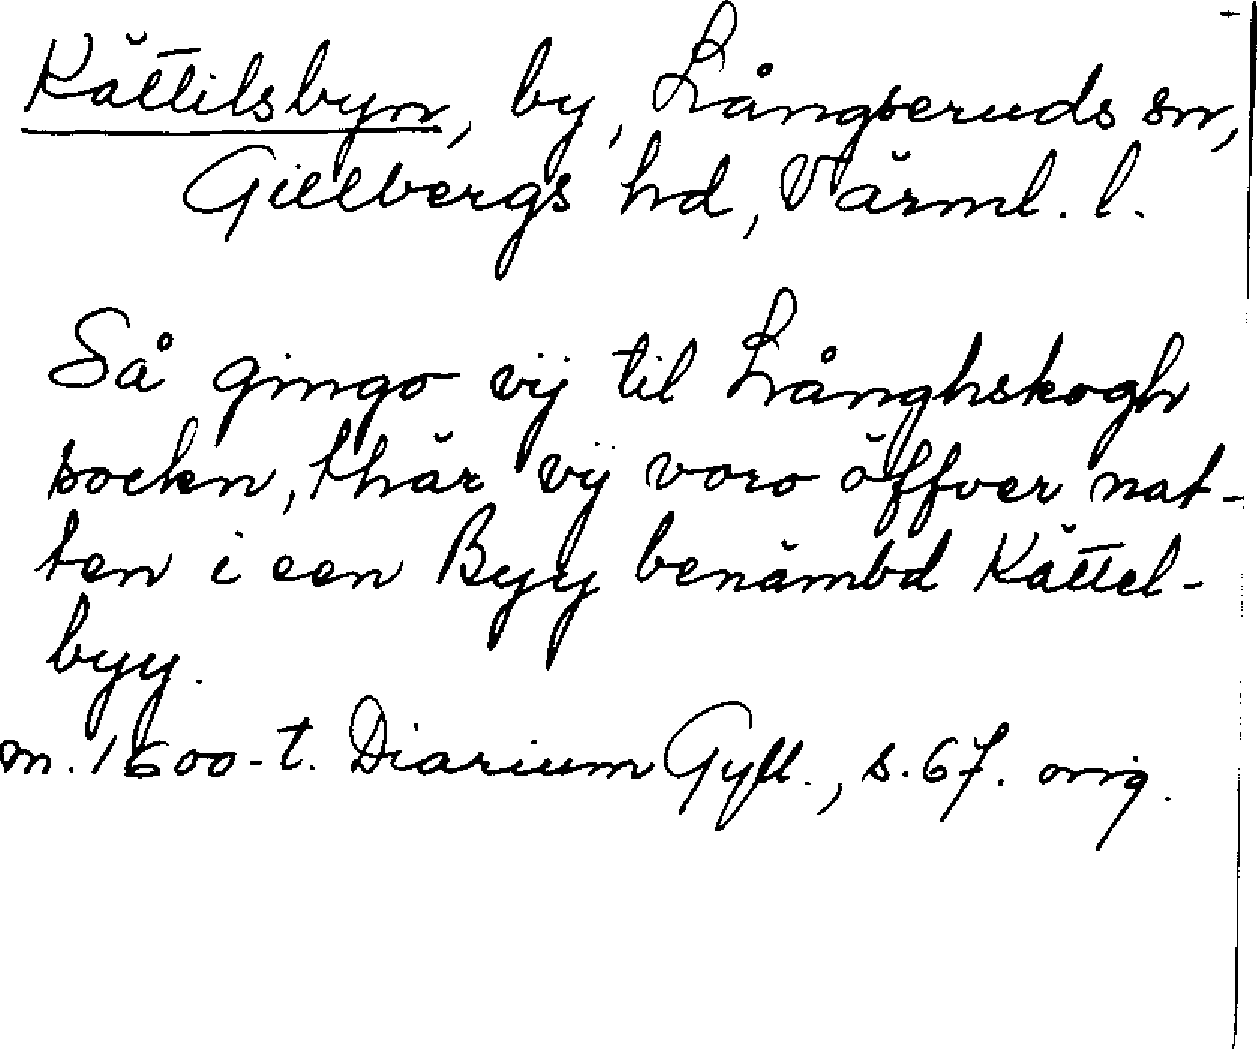 Kättilsbyn, by, Långseruds sn,
Gillbergs hd, Värml. l.
Så gingo vij til Långhskogh
sockn, thär vij voro öffver nat-
ten i een Byy benämbd Kättel-
byy.
m. 1600-t. Diarium Gyll., s. 67. orig.